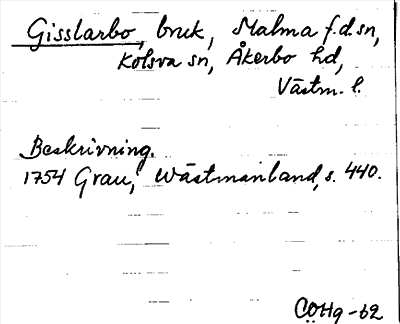 Gisslarbo, bruk, Malma f.d. sn,
Kolsva sn, Åkerbo hd,
Västm. l.
Beskrivning.
1754 Grau, Wästmanland, s. 440.
COHg -62